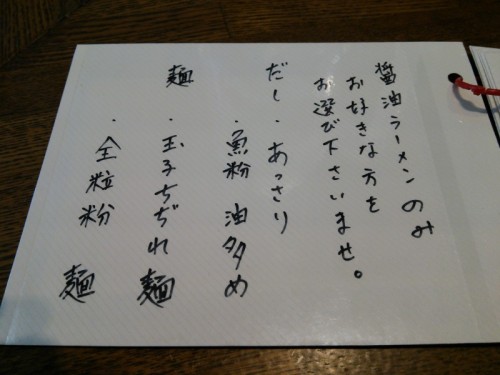 醤油ラーメンのみ
お好きな方を
お選び下さいませ。
だし・あっさり
・魚粉 油多め
麺 ・玉子ちぢれ麺
・全粒粉 麺